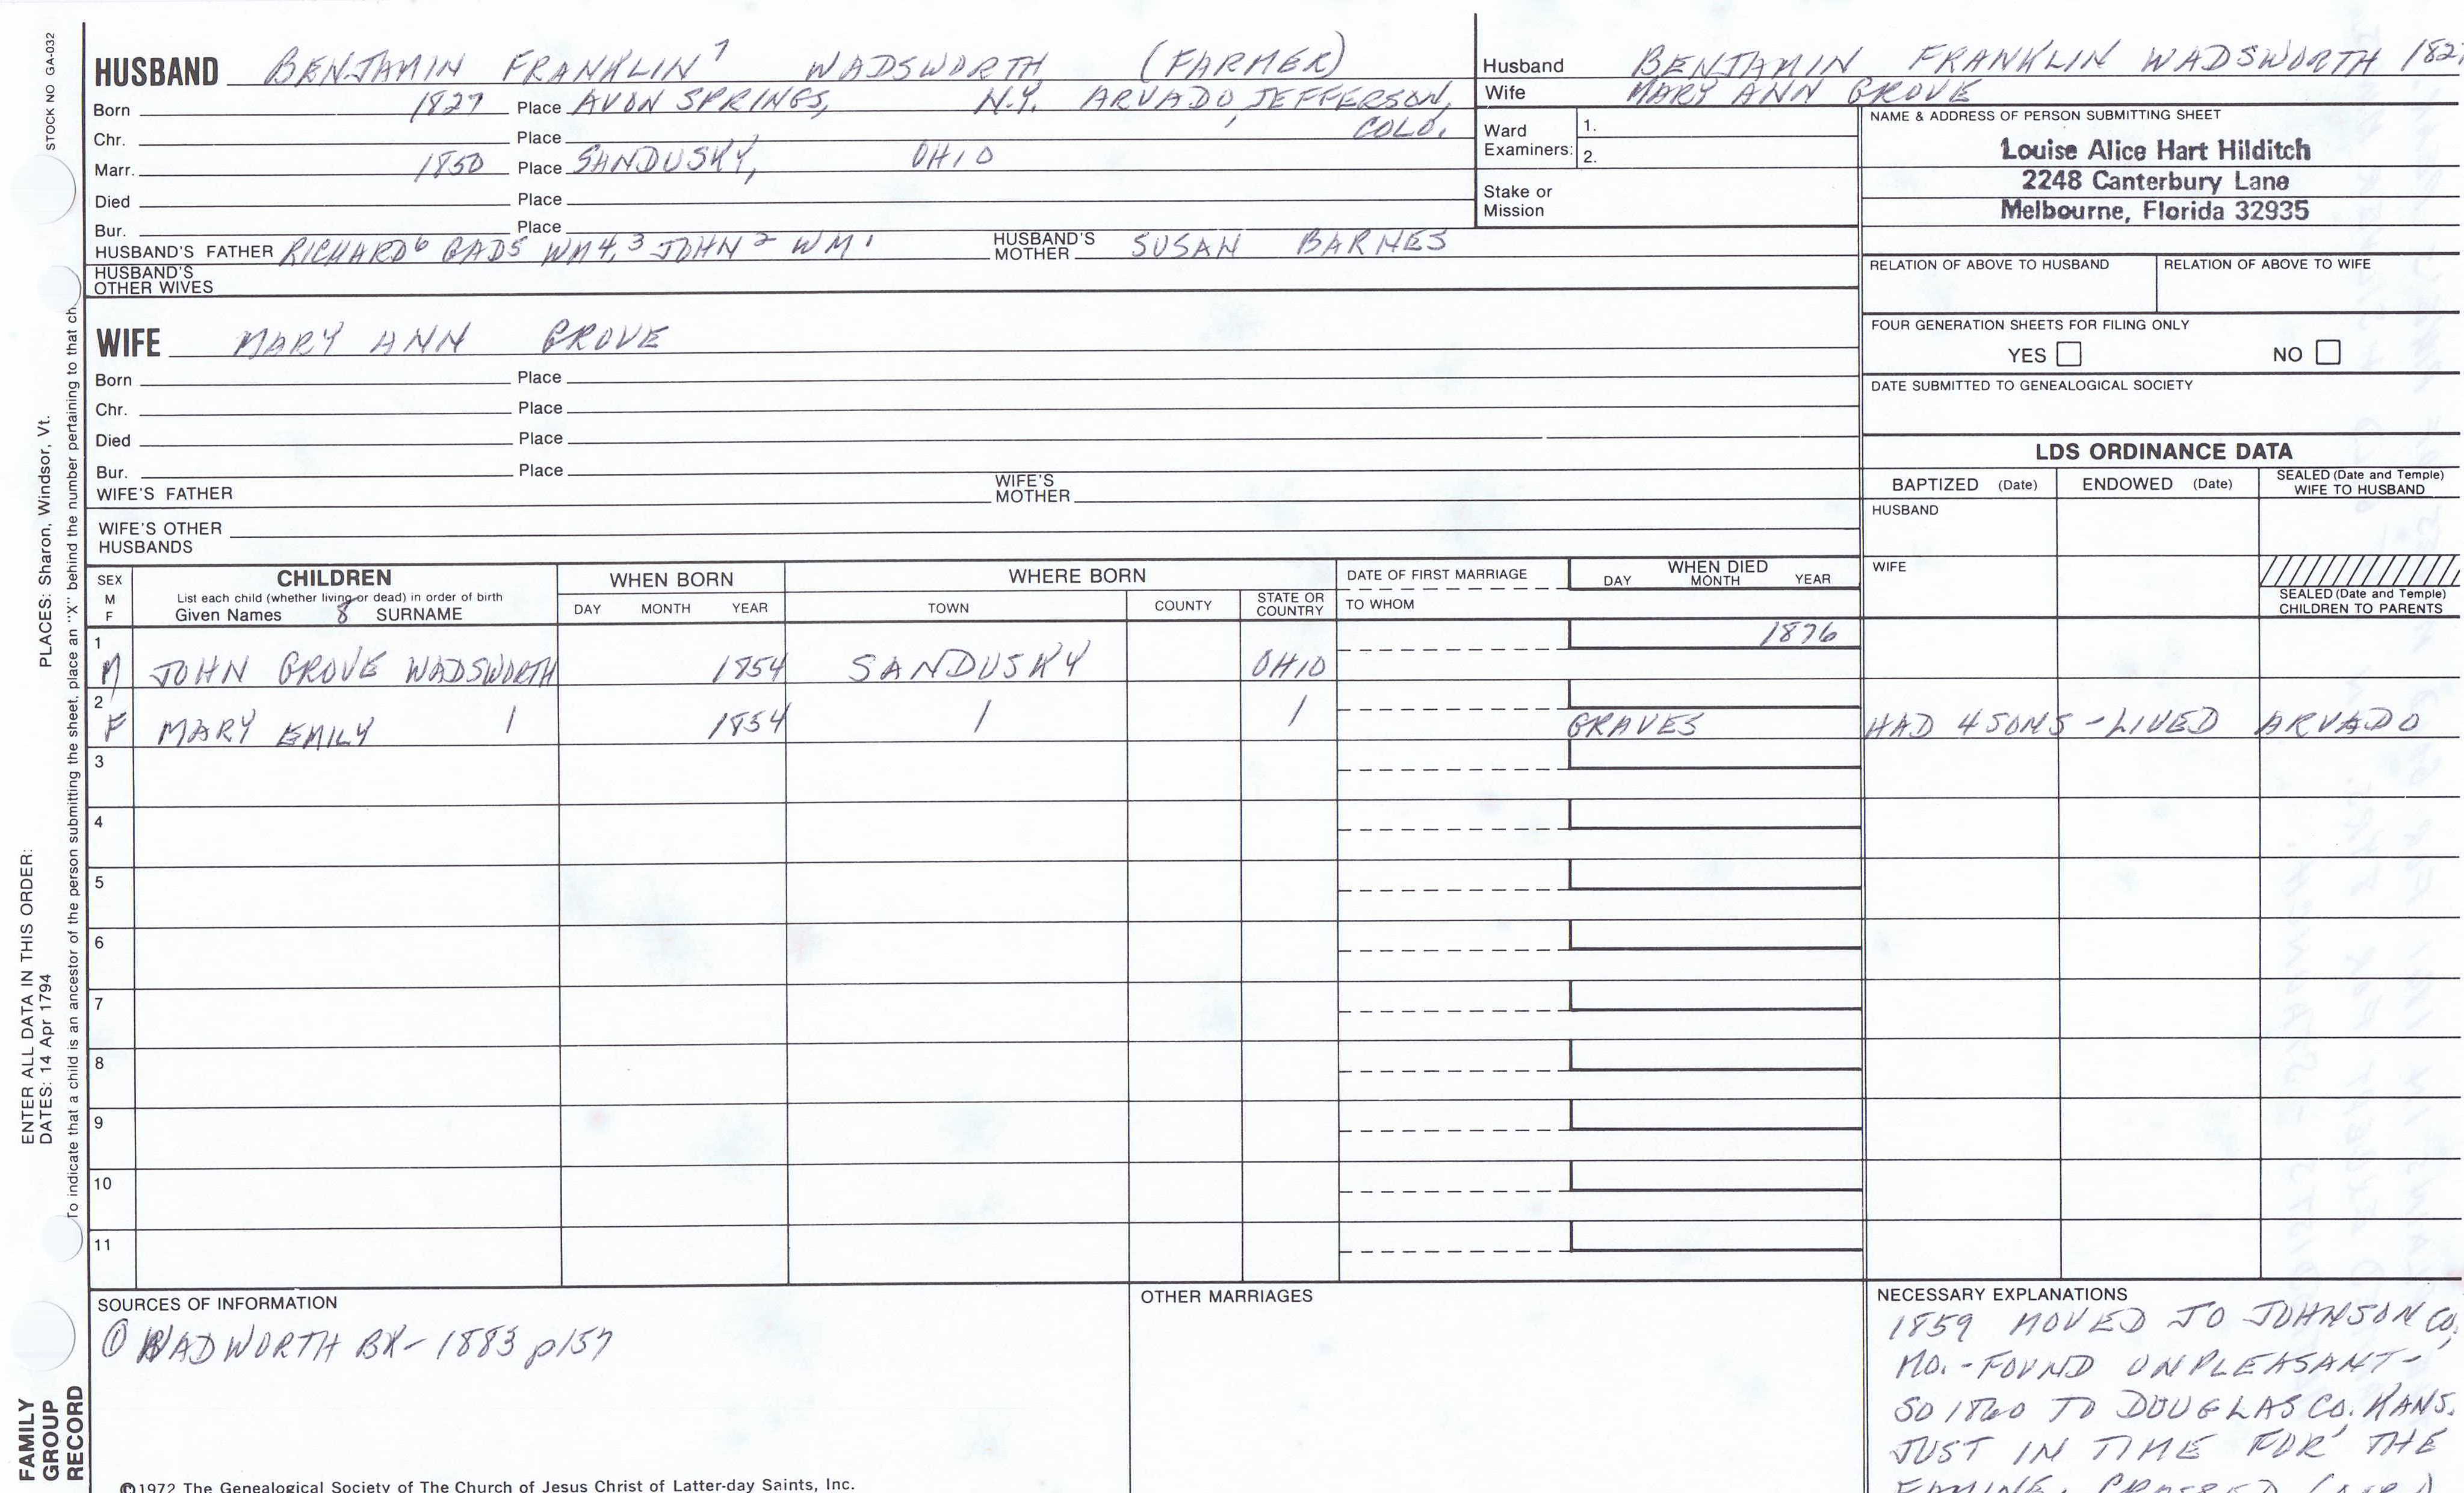 STOCK NO GA-032
HUSBAND BENJAMIN FRANKLIN7 WADSWORTH (FARMER)
Born 1827 Place AVON SPRINGS, N.Y. ARVADO, JEFFERSON,
COLO.
Chr. Place
Marr. 1850 Place SANDUSKY, OHIO
Died Place
Bur. Place
HUSBAND'S FATHER RICHARD6 GAD5 WM4,3 JOHN2 WM1 HUSBAND'S MOTHER SUSAN BARNES
HUSBAND'S OTHER WIVES
Husband BENJAMIN FRANKLIN WADSWORTH 1827
Wife MARY ANN GROVE
Ward Examiners: 1.
2.
Stake or Mission
NAME & ADDRESS OF PERSON SUBMITTING SHEET
Louise Alice Hart Hilditch
2248 Canterbury Lane
Melbourne, Florida 32935
RELATION OF ABOVE TO HUSBAND RELATION OF ABOVE TO WIFE
FOUR GENERATION SHEETS FOR FILING ONLY
YES NO
DATE SUBMITTED TO GENEALOGICAL SOCIETY
WIFE MARY ANN GROVE
Born Place
Chr. Place
Died Place
Bur. Place
WIFE'S FATHER WIFE'S MOTHER
WIFE'S OTHER HUSBANDS
LDS ORDINANCE DATA
BAPTIZED (Date) ENDOWED (Date) SEALED (Date and Temple) WIFE TO HUSBAND
HUSBAND
WIFE
SEALED (Date and Temple) CHILDREN TO PARENTS
SEX M F
CHILDREN
List each child (whether living or dead) in order of birth
Given Names 8 SURNAME
WHEN BORN
DAY MONTH YEAR
WHERE BORN
TOWN COUNTY STATE OR COUNTRY
DATE OF FIRST MARRIAGE
TO WHOM
WHEN DIED
DAY MONTH YEAR
1 1876
M JOHN GROVE WADSWORTH 1854 SANDUSKY OHIO
2
F MARY EMILY 1 1854 1 1 GRAVES HAD 4 SONS - LIVED ARVADO
3
4
5
6
7
8
9
10
11
SOURCES OF INFORMATION
① WADWORTH BK - 1883 p157
OTHER MARRIAGES
NECESSARY EXPLANATIONS
1859 MOVED TO JOHNSON CO,
MO. - FOUND UNPLEASANT -
SO 1860 TO DOUGLAS CO. KANS.
JUST IN TIME FOR THE
FAMINE.
©1972 The Genealogical Society of The Church of Jesus Christ of Latter-day Saints, Inc.
FAMILY
GROUP
RECORD
ENTER ALL DATA IN THIS ORDER:
DATES: 14 Apr 1794 PLACES: Sharon, Windsor, Vt.
To indicate that a child is an ancestor of the person submitting the sheet, place an "X" behind the number pertaining to that ch